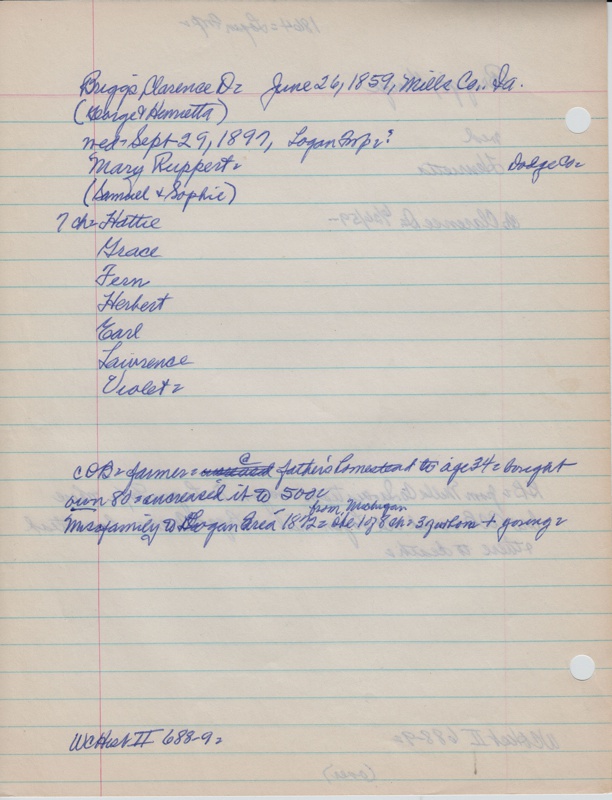 Briggs, Clarence D= June 26, 1859, Mills Co., Ia.
(George & Henrietta)
wed= Sept 29, 1897, Logan Twp=?
Mary Ruppert= Dodge Co=
(Samuel & Sophie)
7 ch= Hattie
Grace
Fern
Herbert
Earl
Lawrence
Violet=
CDB= farmer= father's homestead to age 34= bought
own 80= increased it to 500=
family to Logan Area 1872= from Michigan 1 of 8 ch= 3 +
WCHist II 688-9=